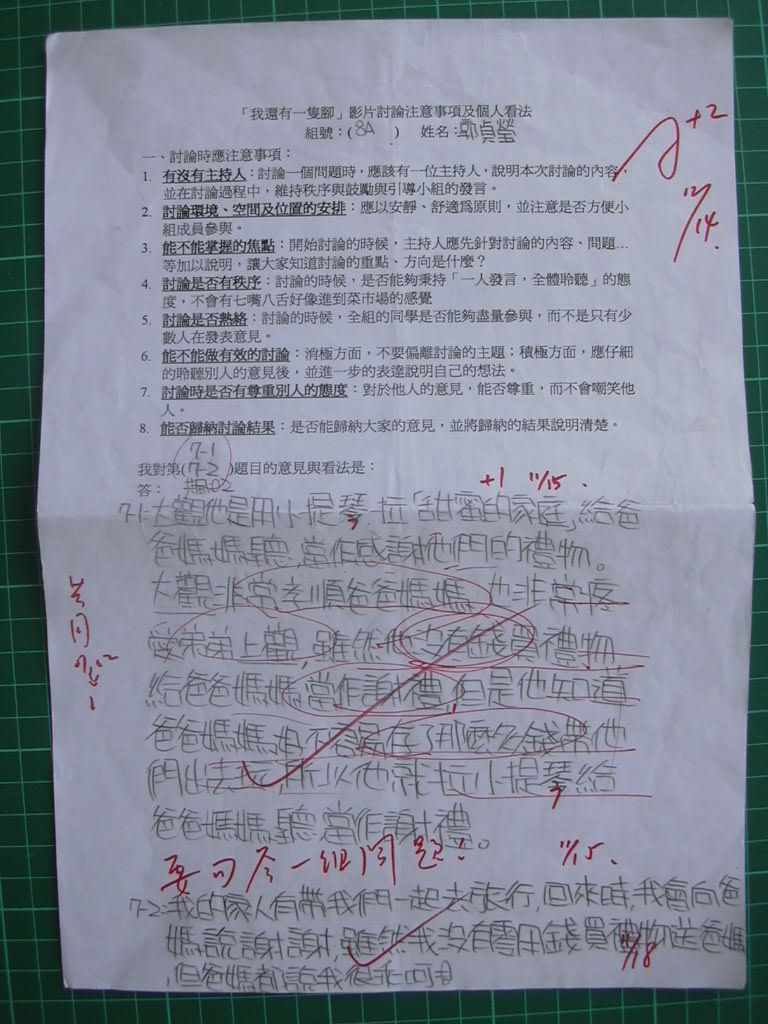 「我還有一隻腳」影片討論注意事項及個人看法
組號：(8A) 姓名：郭貞瑩
+2
12/14
一、討論時應注意事項：
1. 有沒有主持人：討論一個問題時，應該有一位主持人，說明本次討論的內容，
並在討論過程中，維持秩序與鼓勵與引導小組的發言。
2. 討論環境、空間及位置的安排：應以安靜、舒適為原則，並注意是否方便小
組成員參與。
3. 能不能掌握的焦點：開始討論的時候，主持人應先針對討論的內容、問題…
等加以說明，讓大家知道討論的重點、方向是什麼？
4. 討論是否有秩序：討論的時候，是否能夠秉持「一人發言，全體聆聽」的態
度，不會有七嘴八舌好像進到菜市場的感覺
5. 討論是否熱絡：討論的時候，全組的同學是否能夠盡量參與，而不是只有少
數人在發表意見。
6. 能不能做有效的討論：消極方面，不要偏離討論的主題；積極方面，應仔細
的聆聽別人的意見後，並進一步的表達說明自己的想法。
7. 討論時是否有尊重別人的態度：對於他人的意見，能否尊重，而不會嘲笑他
人。
8. 能否歸納討論結果：是否能歸納大家的意見，並將歸納的結果說明清楚。
7-1
我對第(7-2)題目的意見與看法是：
+1 11/15.
答：
7-1.大觀他是用小提琴,拉「甜蜜的家庭」給爸
爸媽媽聽,當作感謝他們的禮物。
大觀非常孝順爸爸媽媽,也非常疼
愛弟弟上觀,雖然他沒有錢買禮物,
給爸爸媽媽當作謝禮,但是他知道
爸爸媽媽
存了那麼多錢帶他
們出去玩,所以他就拉小提琴給
爸爸媽媽聽,當作謝禮。
共同
要回答一組問題! 11/15.
7-2:我的家人有帶我們一起去旅行,回來時,我會向爸
媽說謝謝,雖然我沒有零用錢買禮物送爸媽
11/18
,但爸媽都說我很乖